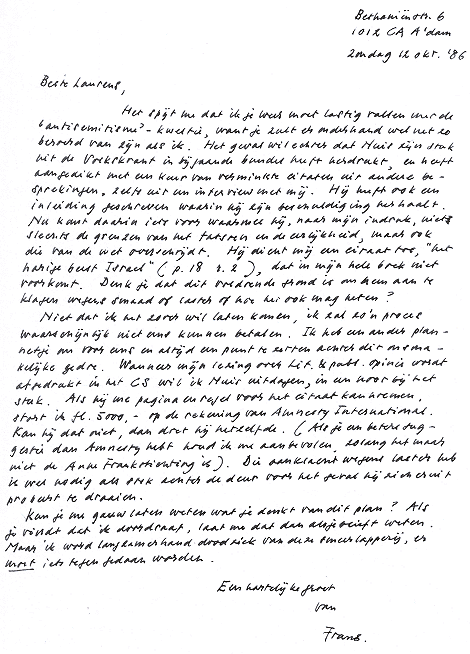 Bethaniënstr. 6
1012 CA A'dam
Zondag 12 okt. '86
Beste Laurens,
Het spijt me dat ik je weer moet lastig vallen met de
'antisemitisme'-kwestie, want je zult er onderhand wel net zo
beroerd van zijn als ik. Het geval wil echter dat Muis zijn stuk
uit de Volkskrant in bijgaande bundel heeft herdrukt, en heeft
aangedikt met een keur van verminkte citaten uit andere be-
sprekingen, zelfs uit een interview met mij. Hij heeft ook een
inleiding geschreven waarin hij zijn beschuldiging herhaalt.
Nu komt daarin iets voor waarmee hij, naar mijn indruk, niet
slechts de grenzen van het fatsoen en de eerlijkheid, maar ook
die van de wet overschrijdt. Hij dicht mij een citaat toe, "het
harige beest Israël" (p. 18 r. 2), dat in mijn hele boek niet
voorkomt. Denk je dat dit voldoende grond is om hem aan te
klagen wegens smaad of laster of hoe het ook mag heten?
Niet dat ik het zover wil laten komen, ik zal zo'n proces
waarschijnlijk niet eens kunnen betalen. Ik heb een ander plan-
netje om voor eens en altijd een punt te zetten achter dit onsma-
kelijke gedoe. Wanneer mijn lezing over Lit. & publ. opinie wordt
afgedrukt in het CS wil ik Muis uitdagen, in een noot bij het
stuk. Als hij me pagina en regel voor het citaat kan noemen,
stort ik fl. 5000,- op de rekening van Amnesty International.
Kan hij dat niet, dan doet hij hetzelfde. (Als je een betere sug-
gestie dan Amnesty hebt houd ik me aanbevolen, zolang het maar
niet de Anne Frankstichting is). Die aanklacht wegens laster heb
ik wel nodig als stok achter de deur voor het geval hij zich eruit
probeert te draaien.
Kun je me gauw laten weten wat je denkt van dit plan? Als
je vindt dat ik doordraaf, laat me dat dan alsjeblieft weten.
Maar ik word langzamerhand doodziek van deze smeerlapperij, er
moet iets tegen gedaan worden.
Een hartelijke groet
van
Frans.